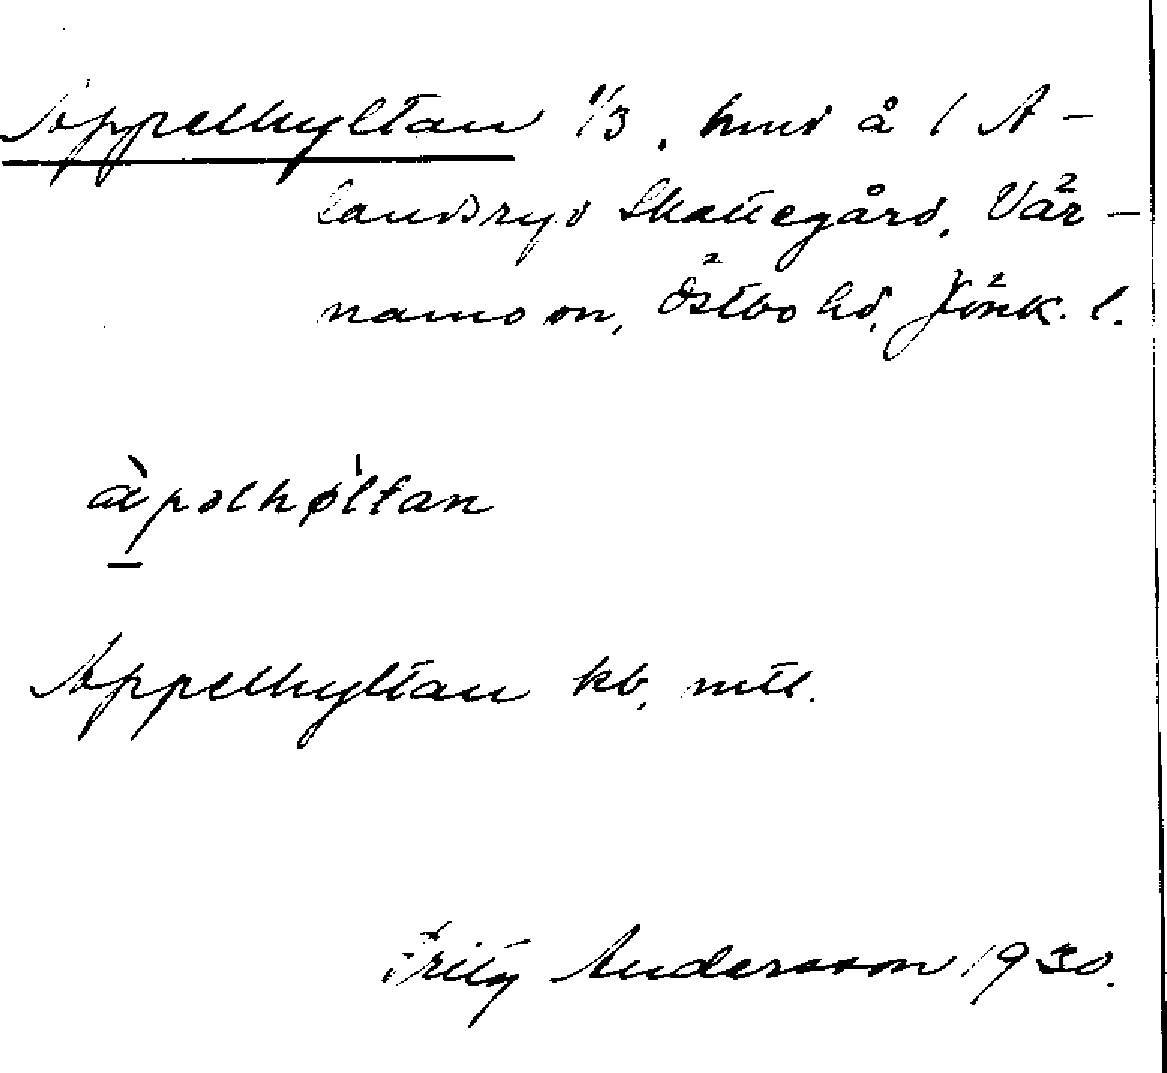 Äppelhyltan 1/3, hmd å 1 A-
landsryd Skattegård, Vär-
namo sn, Östbo hd, Jönk. l.
äpəlhøltan
Äppelhyltan kb, mtl.
Fritz Andersson 1930.